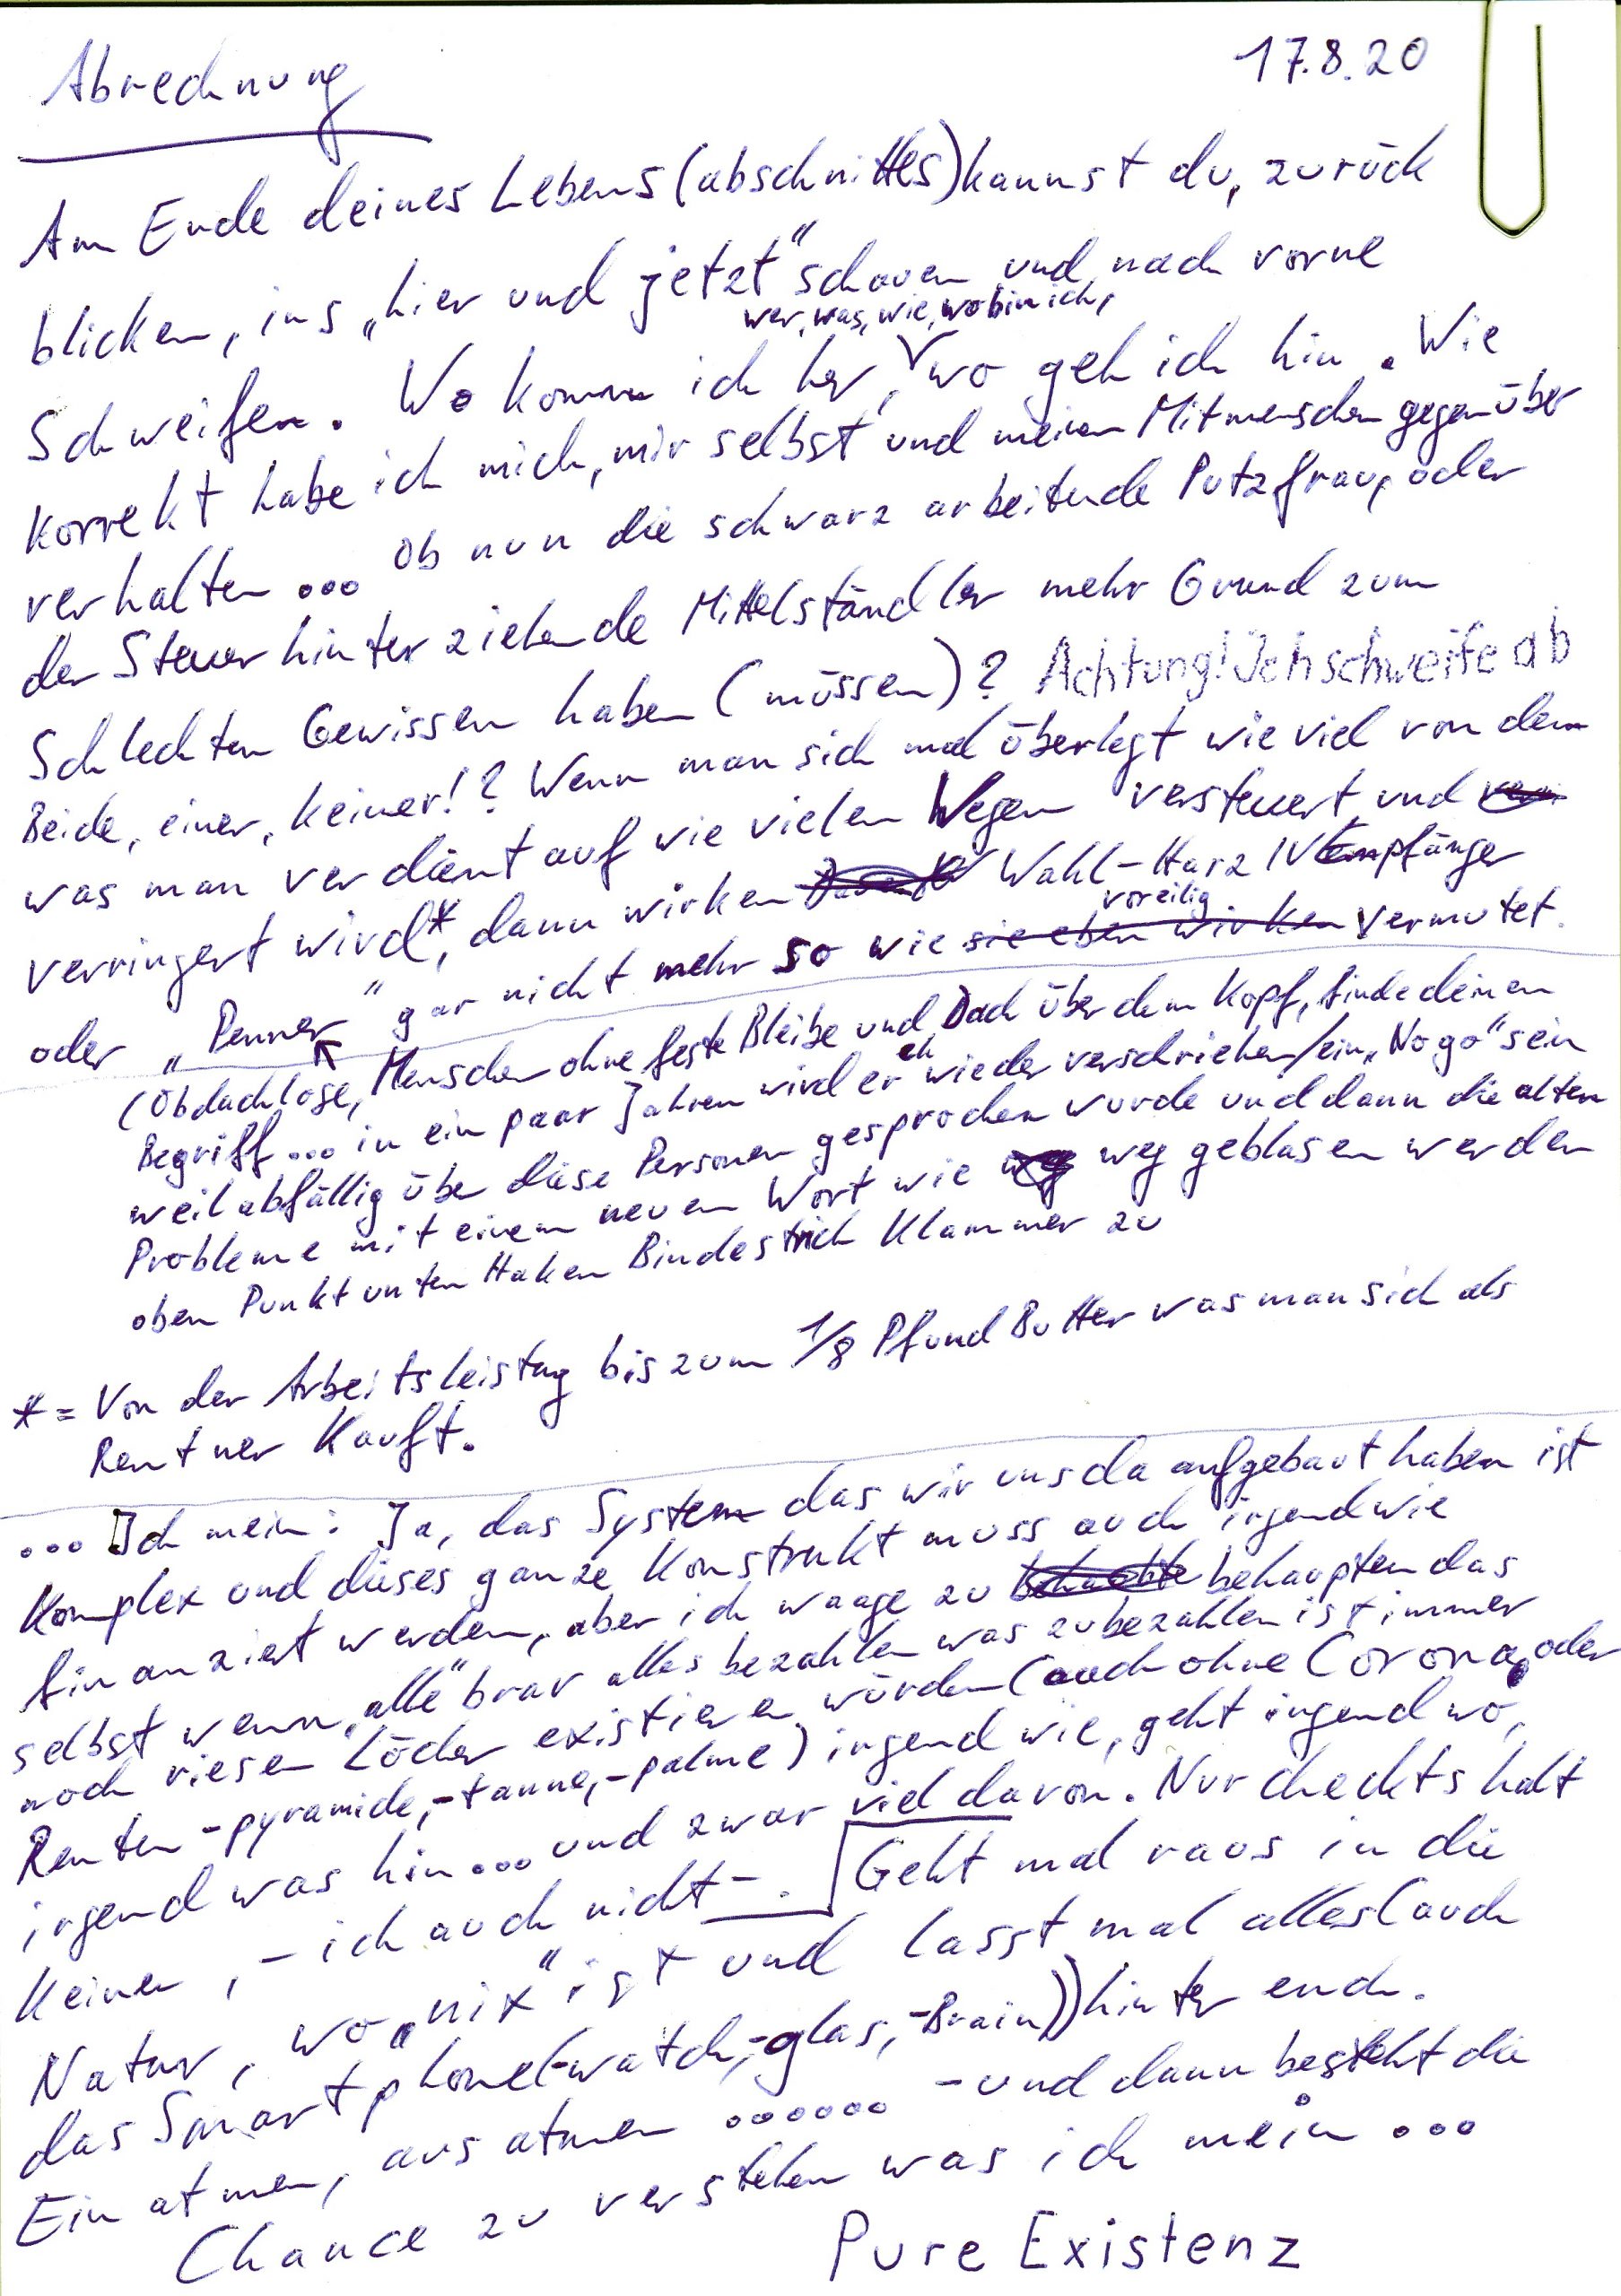 Abrechnung
17.8.20
Am Ende deines Lebens(abschnittes) kannst du, zurück
blicken, ins „hier und jetzt" schauen und nach vorne
wer, was, wie, wo bin ich,
Schweifen. Wo komm ich her, wo geh ich hin. Wie
korrekt habe ich mich, mir selbst und meinen Mitmenschen gegenüber
verhalten ... ob nun die schwarz arbeitende Putzfrau, oder
der Steuerhinterziehende Mittelständler mehr Grund zum
Schlechten Gewissen haben (müssen)? Achtung! Ich schweife ab
Beide, einer, keiner!? Wenn man sich mal überlegt wie viel von dem
was man verdient auf wie vielen Wegen versteuert und
verringert wird*, dann wirken Wahl-Harz IV Empfänger
voreilig
oder „Penner" gar nicht mehr so wie sie eben wirken vermutet.
(Obdachlose, Menschen ohne feste Bleibe und Dach über dem Kopf, finde deinen
Begriff... in ein paar Jahren wird er eh wieder verschriehen/ein „No go" sein
weil abfällig über diese Personen gesprochen wurde und dann die alten
Probleme mit einem neuen Wort wie weg geblasen werden
oben Punkt unten Haken Bindestrich Klammer zu
* = Von der Arbeitsleistung bis zum 1/8 Pfund Butter was man sich als
Rentner Kauft.
... Ich mein: Ja, das System das wir uns da aufgebaut haben ist
Komplex und dieses ganze Konstrukt muss auch irgendwie
finanziert werden, aber ich waage zu behaupten das
selbst wenn „alle" brav alles bezahlen was zu bezahlen ist immer
noch riesen Löcher existieren würden (auch ohne Corona, oder
Renten-pyramide,-tanne,-palme) irgend wie, geht irgend wo,
irgend was hin... und zwar viel davon. Nur checkts halt
keiner, - ich auch nicht -. Geht mal raus in die
Natur, wo „nix" ist und lasst mal alles (auch
das Smartphone(-watch,-glas,-Brain)) hinter euch.
Ein atmen, aus atmen ...... - und dann besteht die
Chance zu verstehen was ich mein ...
Pure Existenz